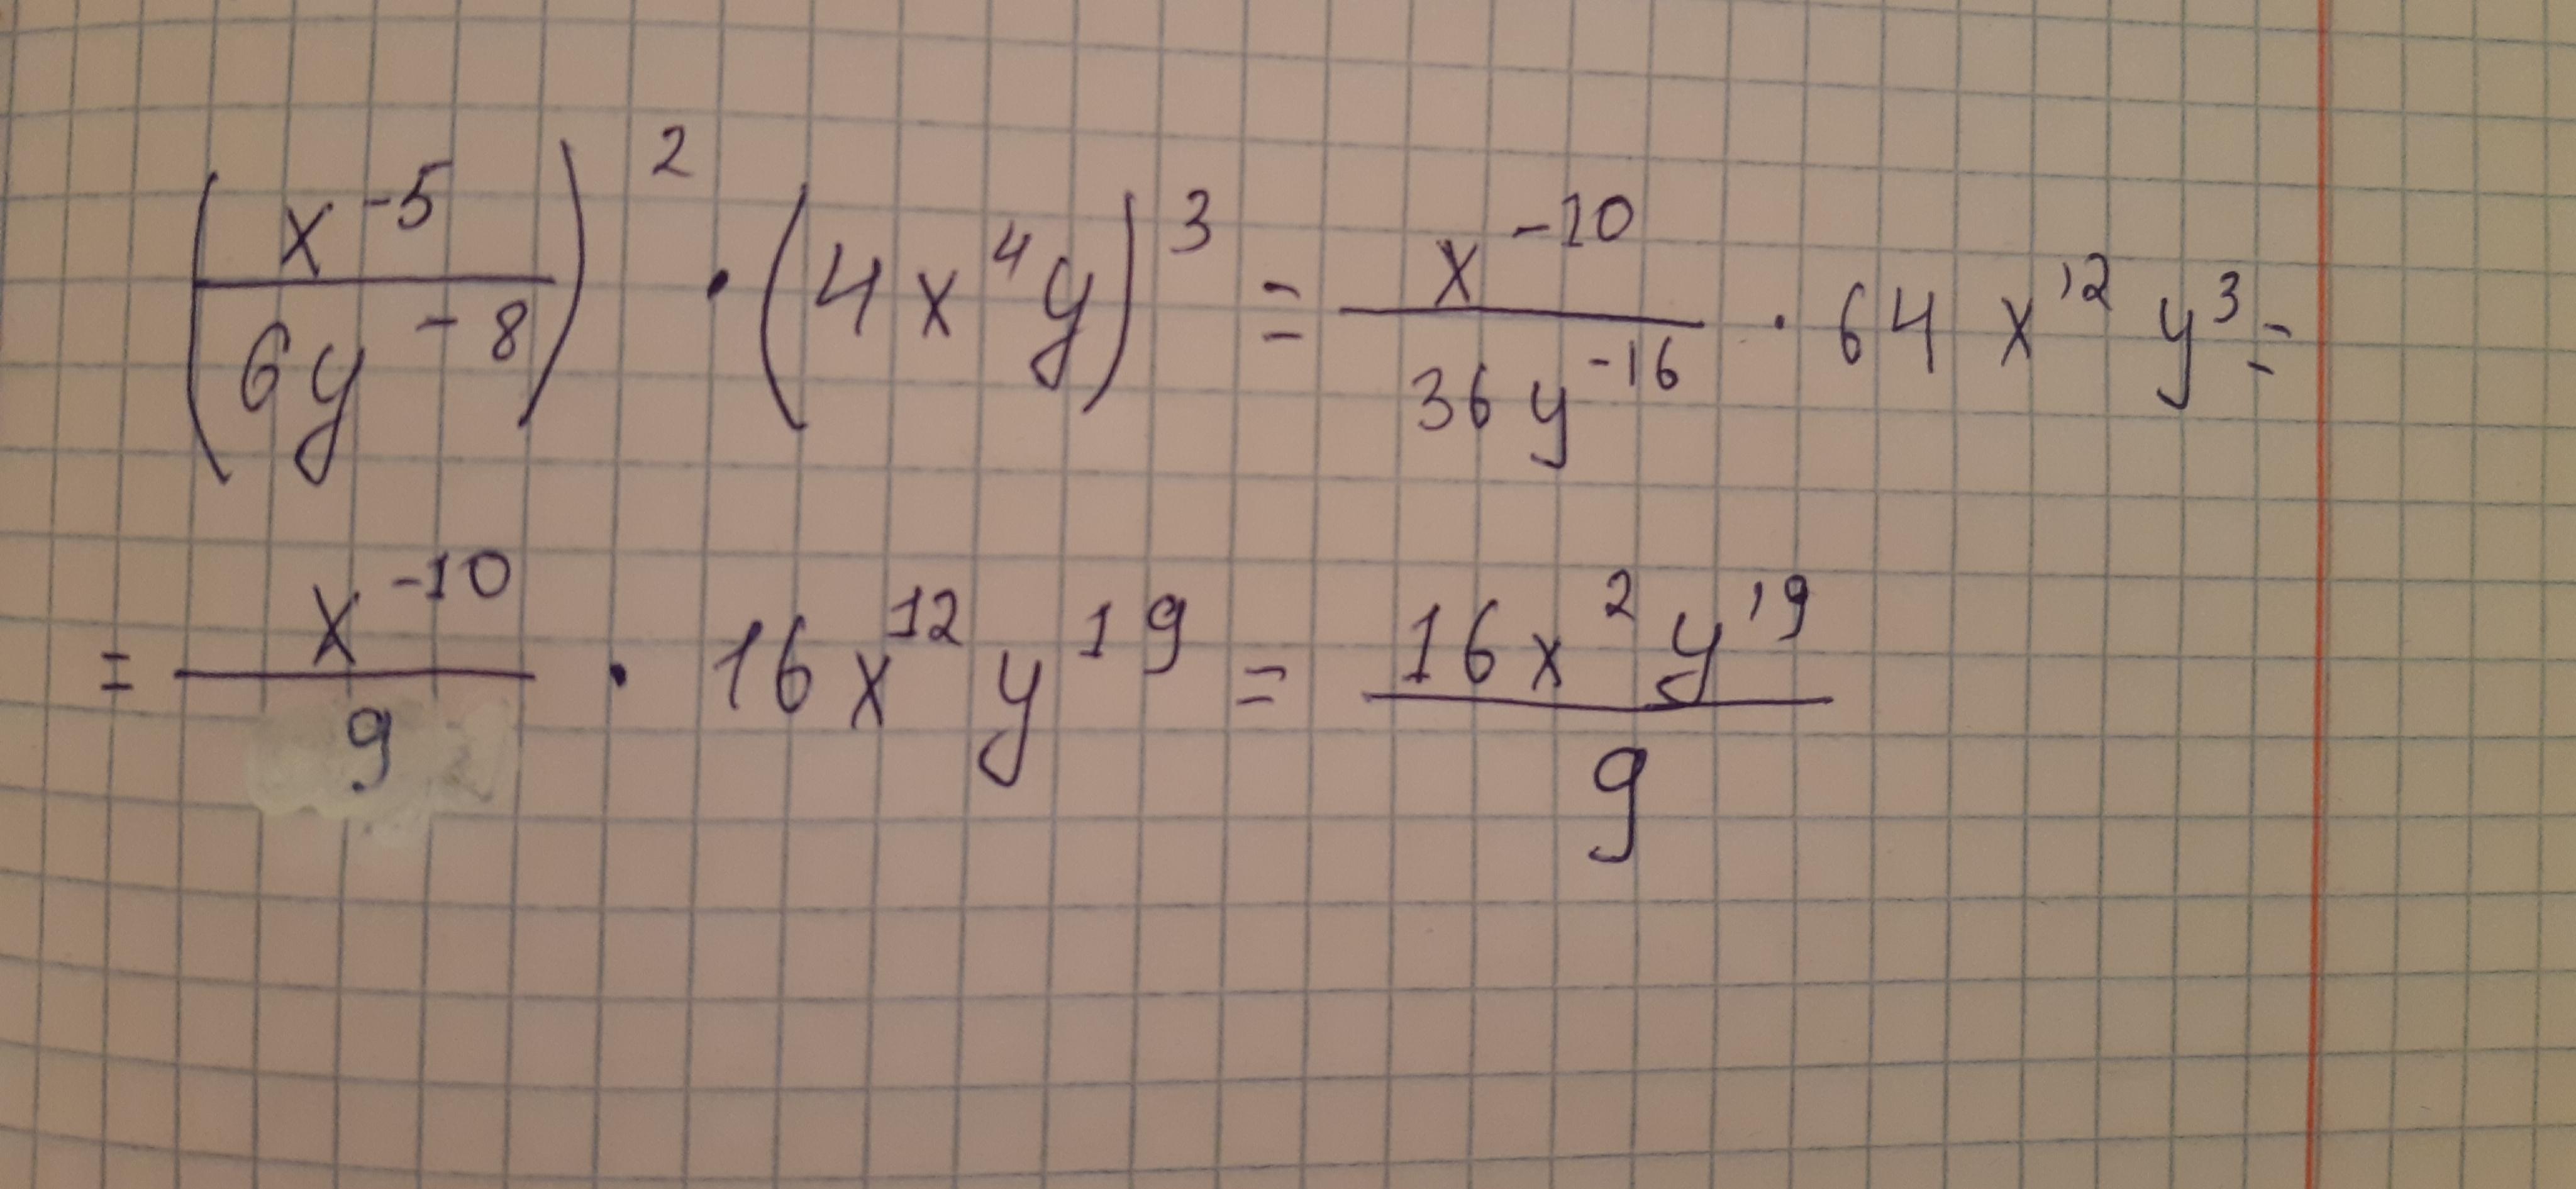 (x^-5 / 6y^-8)^2 · (4x^4y)^3 = x^-10 / 36y^-16 · 64x^12 y^3 =
= x^-10 / 9 · 16x^12 y^19 = 16x^2 y^19 / 9